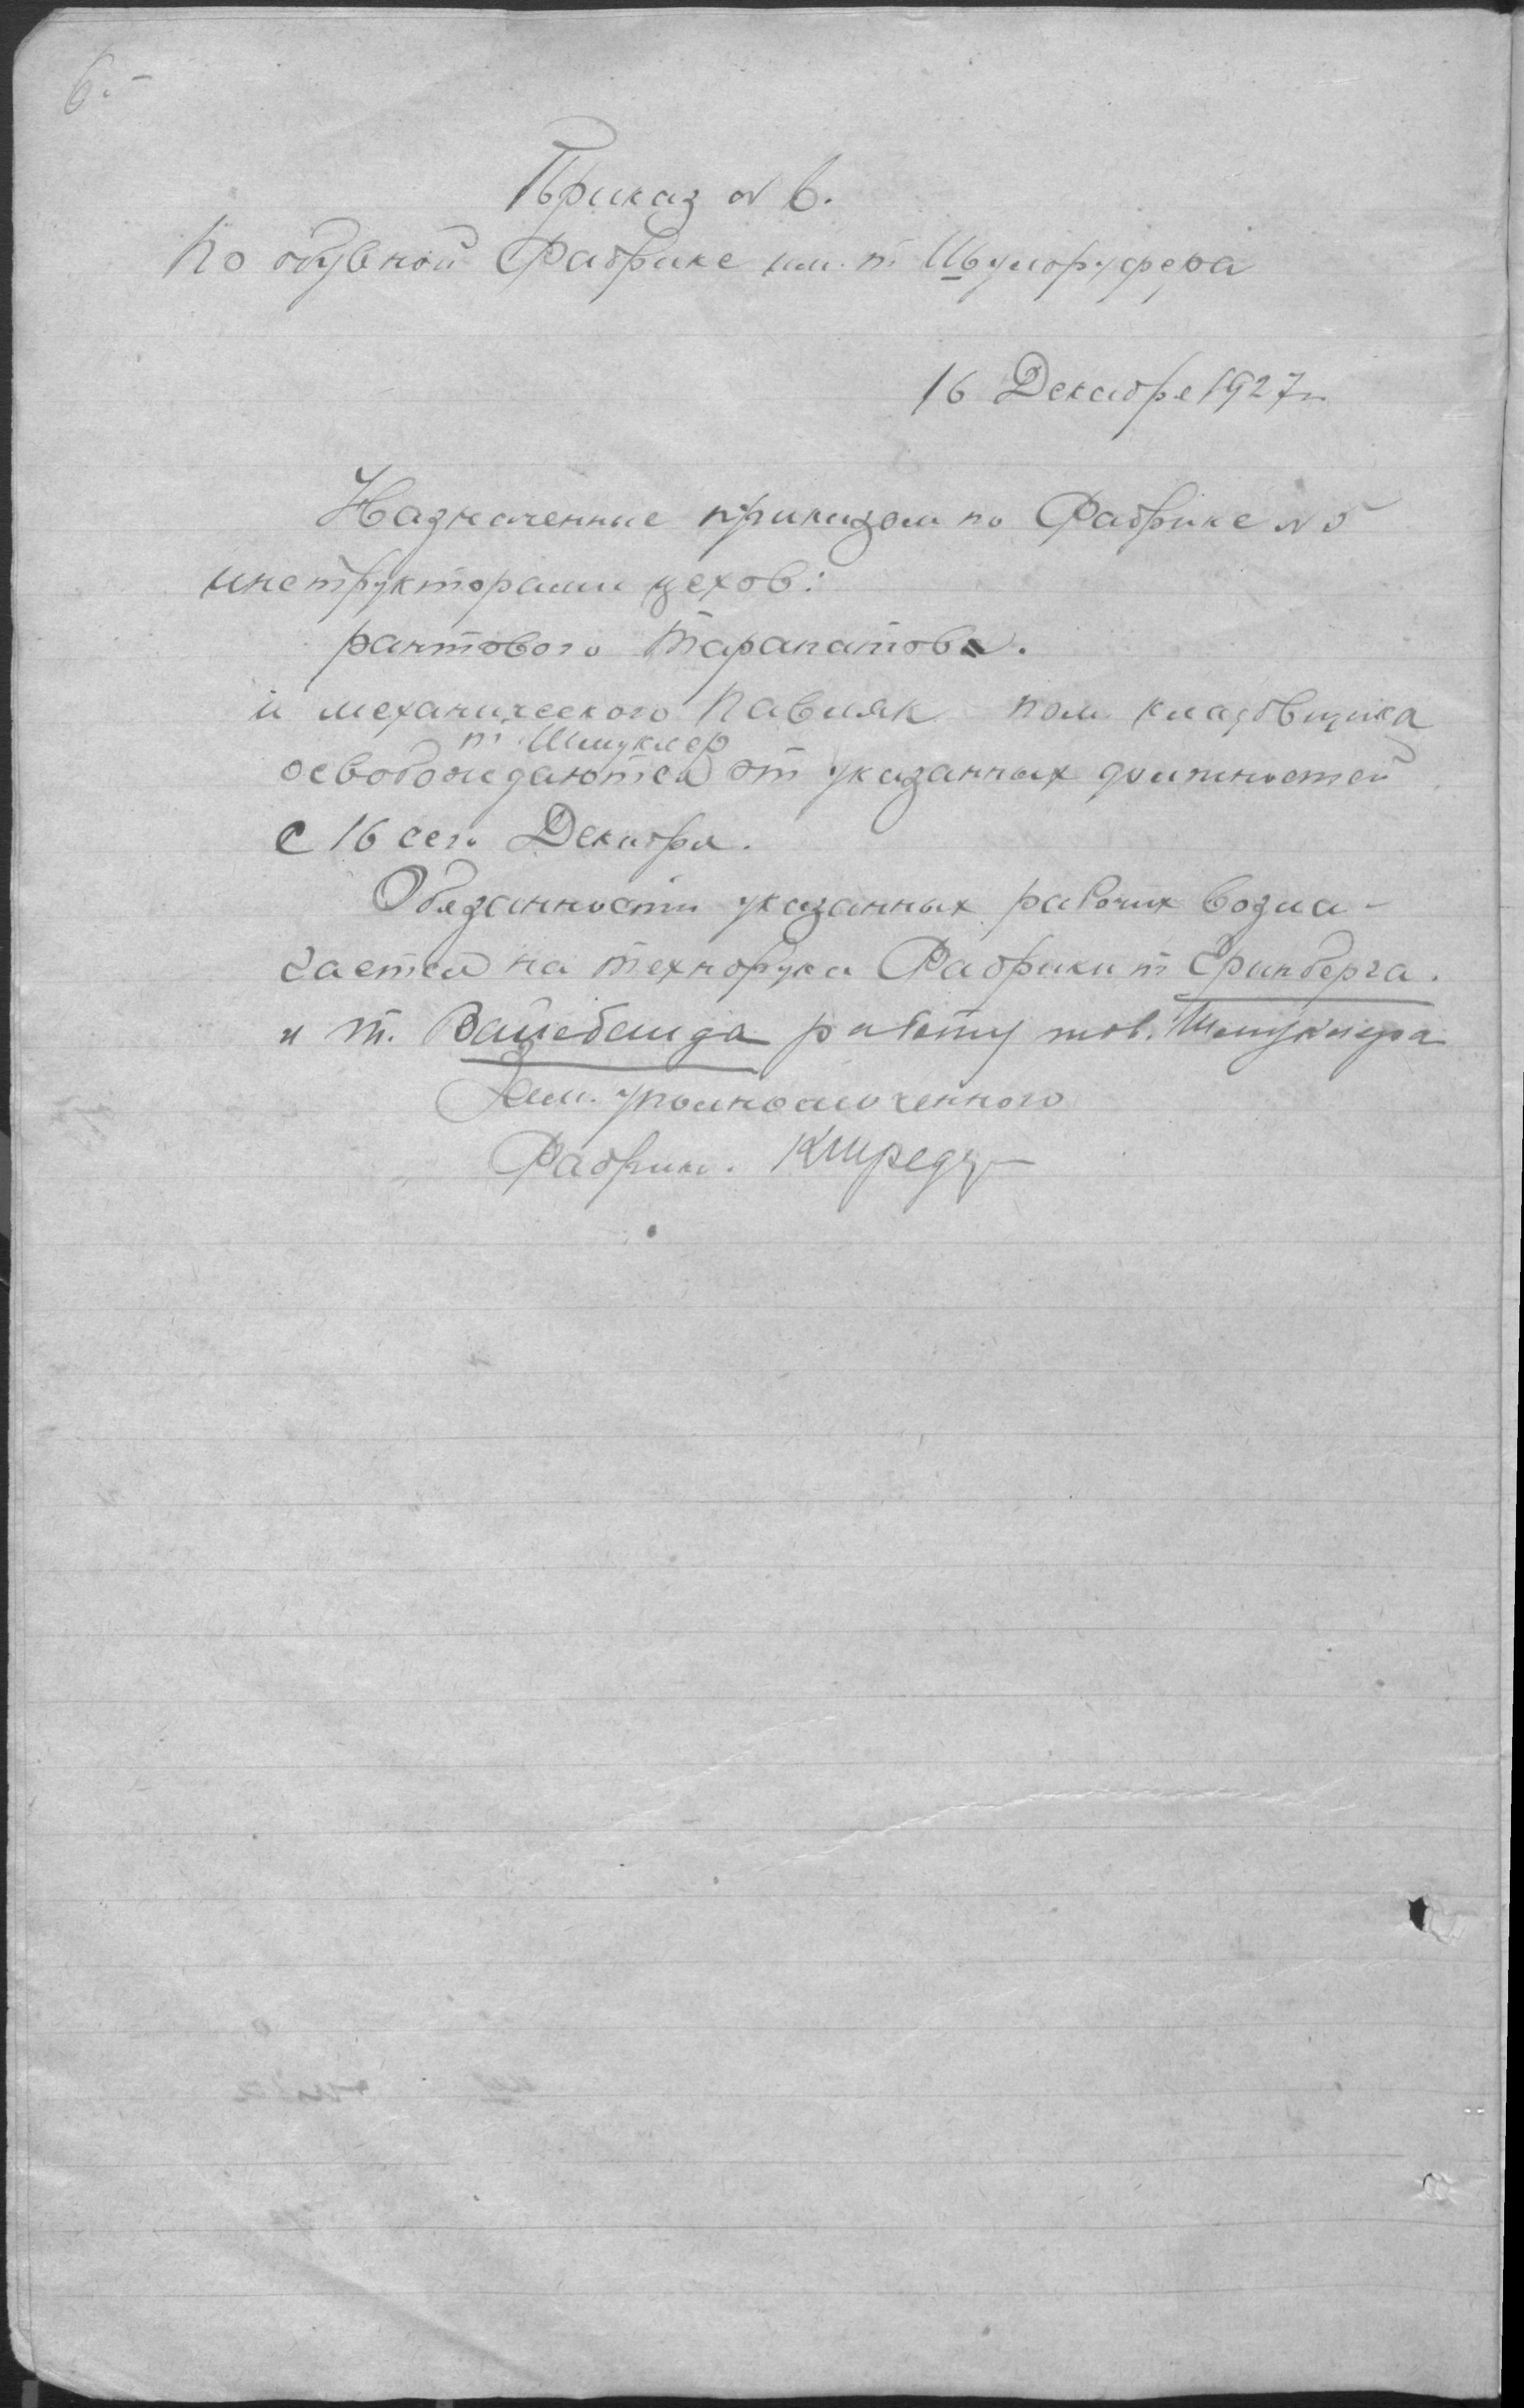 6.
Приказ № 6.
По обувной Фабрике им. т.
16 Декабря 1927 г.
Назначенные приказом по Фабрике № 5
инструкторами цехов:
рантового Тарапатов.
и механического Павляк пом. кладовщика
т. Шмуклер
освобождаются от указанных должностей
с 16 сего Декабря.
Обязанности указанных рабочих возла-
гается на техпорука Фабрики т Гринберга.
и т. работу тов. Шмуклера
Зам. уполномоченного
Фабрики.